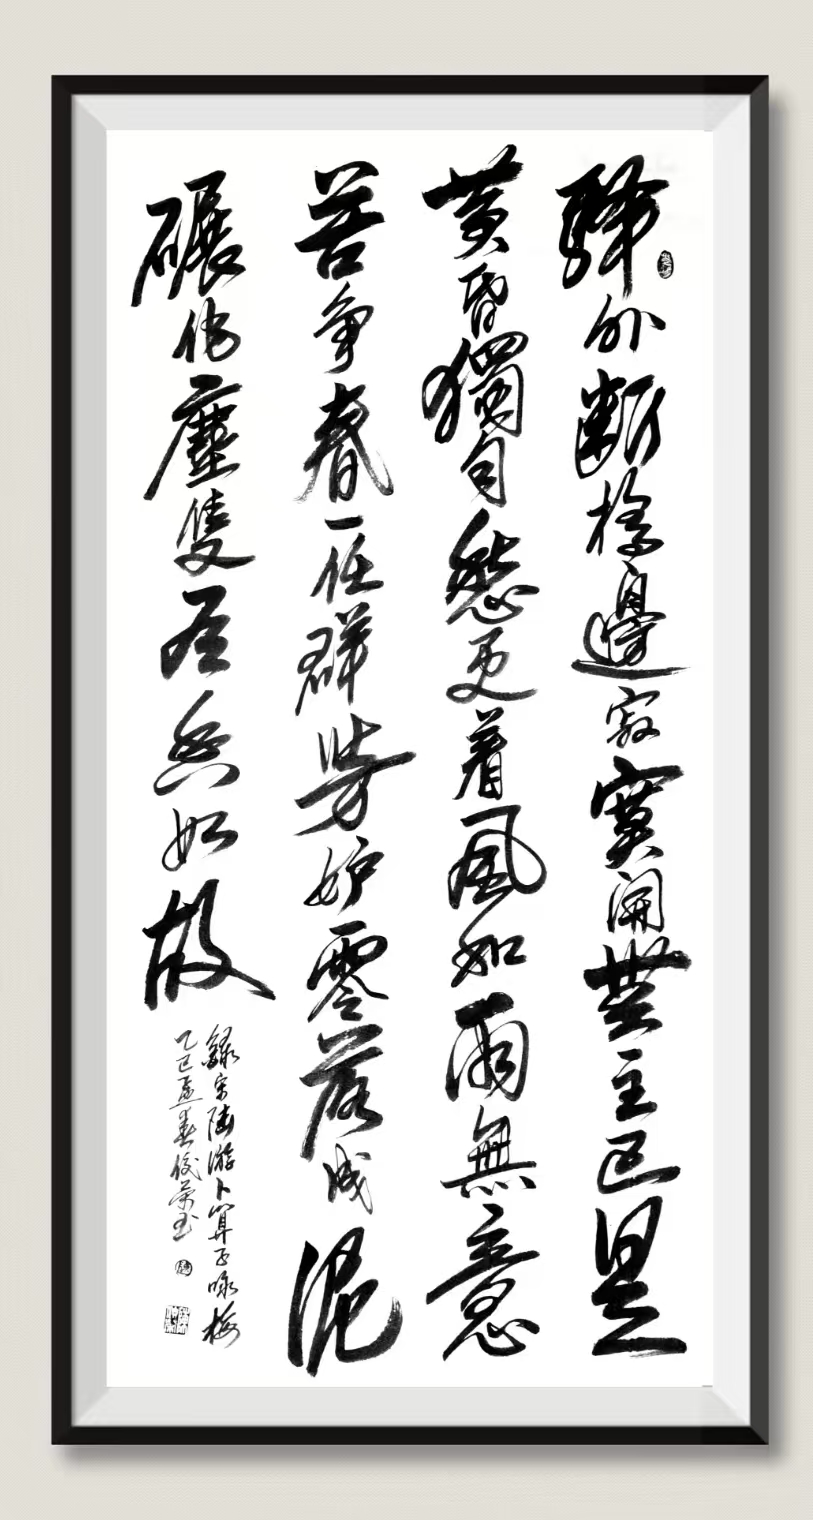 驛外斷橋邊寂寞開無主已是
黄昏獨自愁更着風和雨無意
苦争春一任群芳妒零落成泥
碾作塵隻有香如故
錄宋陸游卜算子咏梅
乙巳孟春俊荣